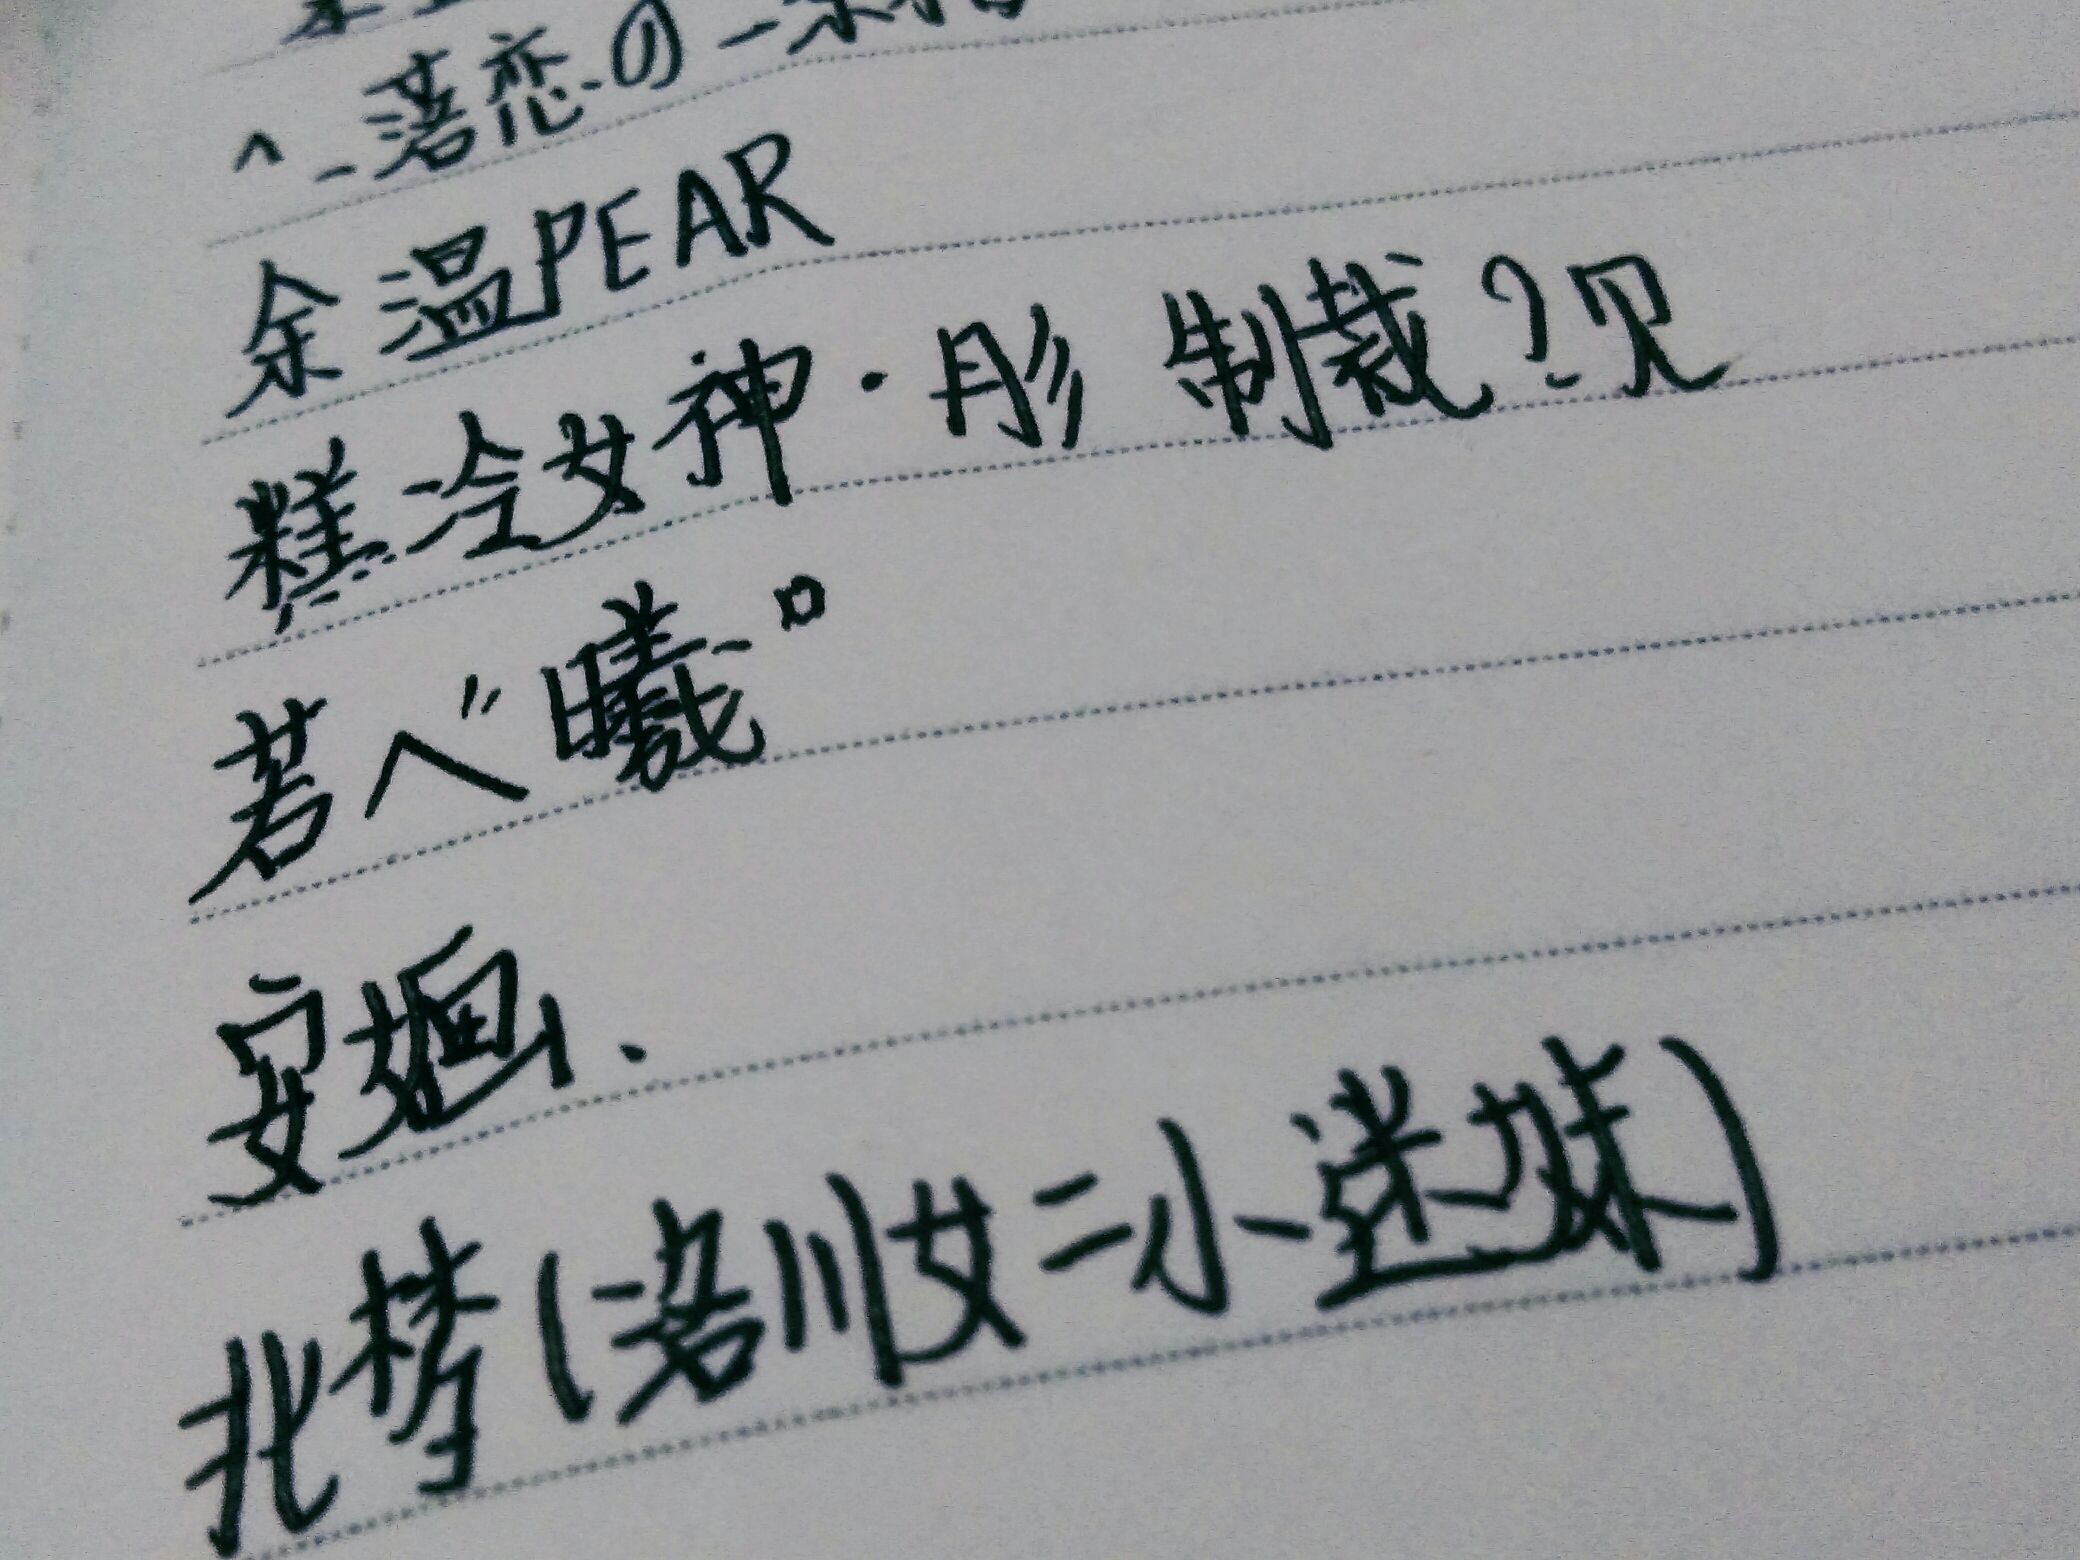 ^_落恋の一
余温PEAR
糕冷女神·彤 制裁？见
若ベ曦。
安婳、
北梣(洛川女=小迷妹)